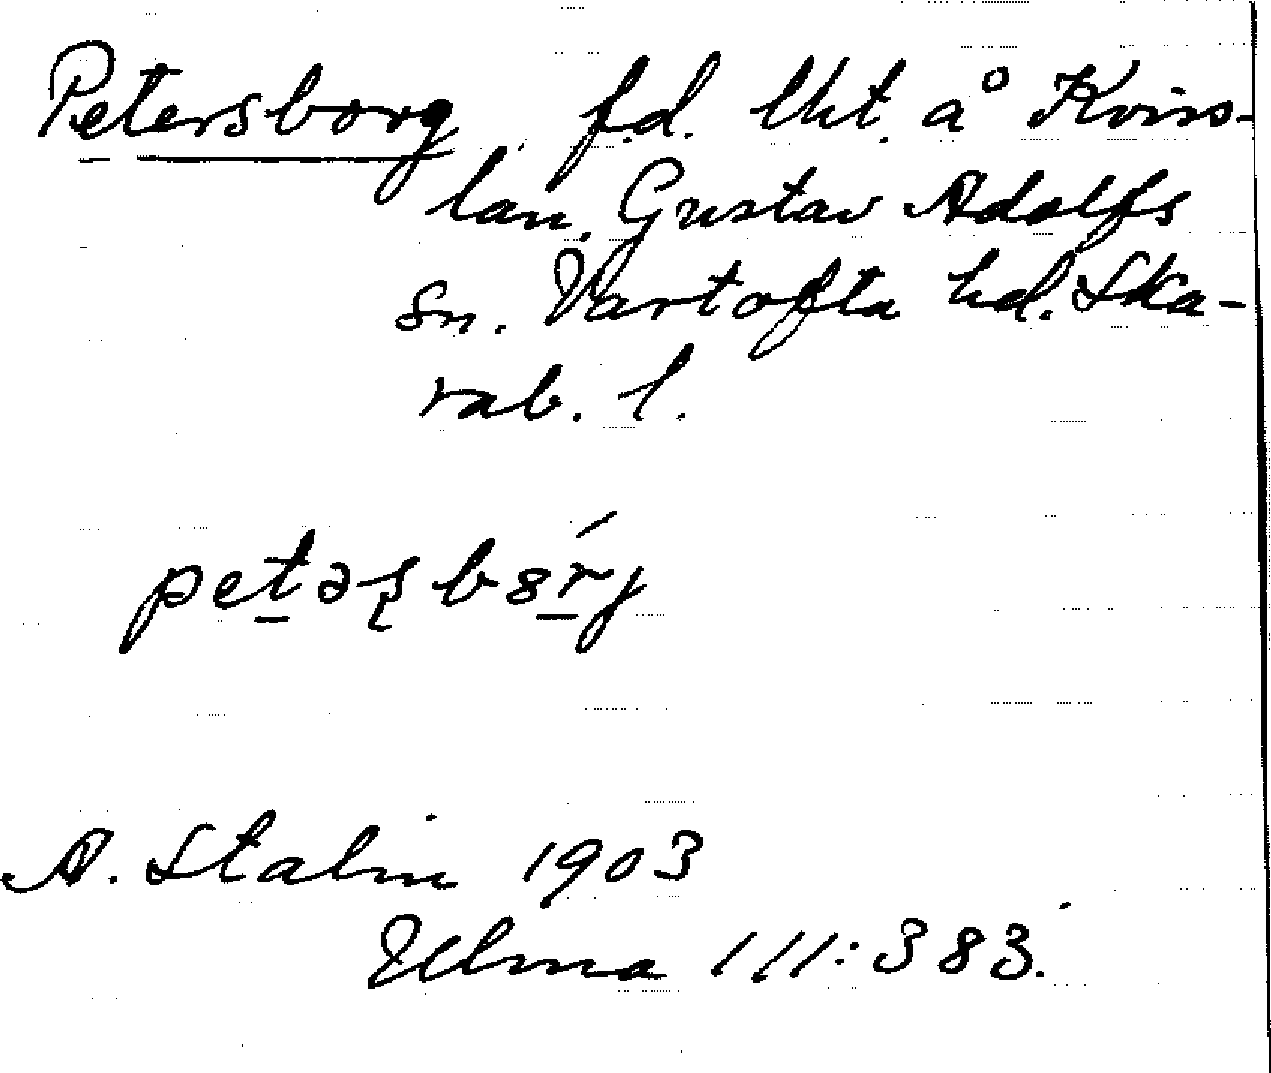 Petersborg f.d. lht. å Kviss-
lan. Gustav Adolfs
sn. Vartofta hd. Ska-
rab. l.
petəʂbȣrj
A. Stalin 1903
Ulma 111:383.